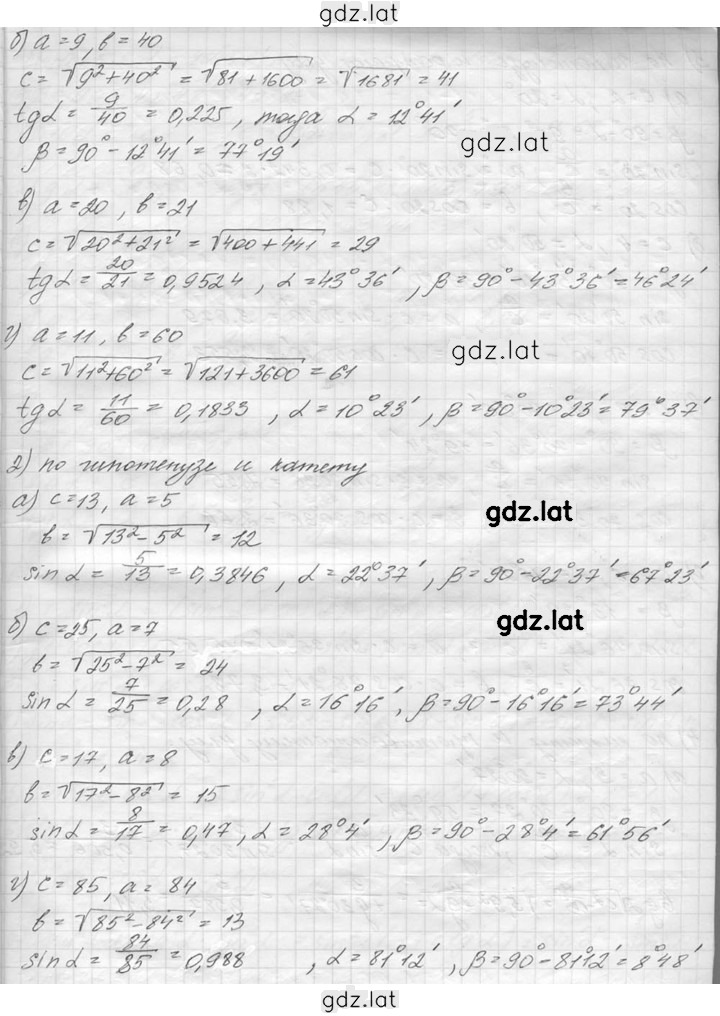 gdz.lat
б) a = 9, b = 40
c = √9² + 40² = √81 + 1600 = √1681 = 41
tgα = 9/40 = 0,225, тогда α = 12°41'
gdz.lat
β = 90° - 12°41' = 77°19'
в) a = 20, b = 21
c = √20² + 21² = √400 + 441 = 29
tgα = 20/21 = 0,9524, α = 43°36', β = 90° - 43°36' = 46°24'
г) a = 11, b = 60
gdz.lat
c = √11² + 60² = √121 + 3600 = 61
tgα = 11/60 = 0,1833, α = 10°23', β = 90° - 10°23' = 79°37'
2) по гипотенузе и катету
а) c = 13, a = 5
gdz.lat
b = √13² - 5² = 12
sinα = 5/13 = 0,3846, α = 22°37', β = 90° - 22°37' = 67°23'
б) c = 25, a = 7
gdz.lat
b = √25² - 7² = 24
sinα = 7/25 = 0,28, α = 16°16', β = 90° - 16°16' = 73°44'
в) c = 17, a = 8
b = √17² - 8² = 15
sinα = 8/17 = 0,47, α = 28°4', β = 90° - 28°4' = 61°56'
г) c = 85, a = 84
b = √85² - 84² = 13
sinα = 84/85 = 0,988, α = 81°12', β = 90° - 81°12' = 8°48'
gdz.lat